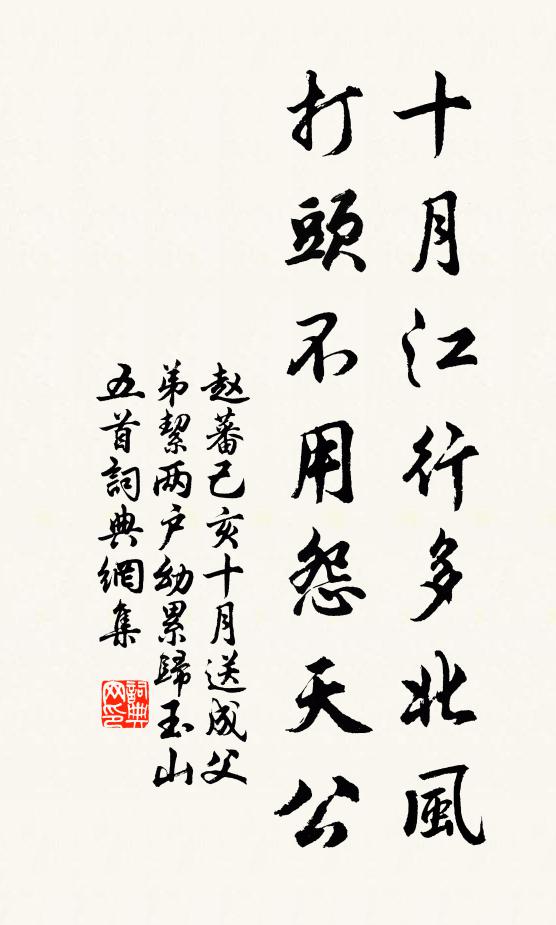 十月江行多北風
打頭不用怨天公
赵蕃己亥十月送成父
弟絜两户幼累歸玉山
五首詞典網集
詞典网印